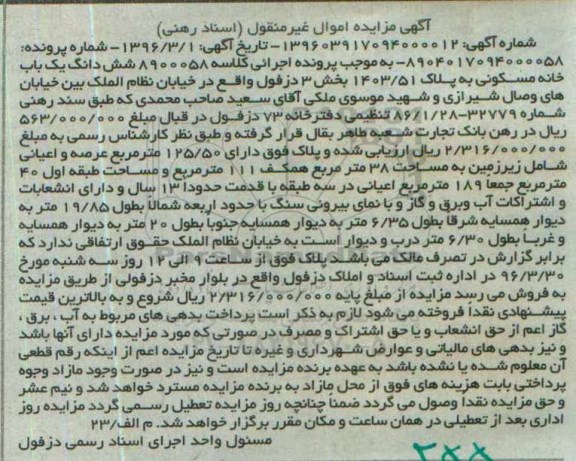 آگهی مزایده اموال غیرمنقول (اسناد رهنی)
شماره آگهی: ۱۳۹۶۰۳۹۱۷۰۹۴۰۰۰۰۱۲- تاریخ آگهی: ۱۳۹۶/۳/۱- شماره پرونده:
۸۹۰۴۰۱۷۰۹۴۰۰۰۰۵۸- به موجب پرونده اجرائی کلاسه ۸۹۰۰۰۵۸ شش دانگ یک باب
خانه مسکونی به پلاک ۱۴۰۳/۵۱ بخش ۳ دزفول واقع در خیابان نظام الملک بین خیابان
های وصال شیرازی و شهید موسوی ملکی آقای سعید صاحب محمدی که طبق سند رهنی
شماره ۳۲۷۷۹-۸۶/۱/۲۸ تنظیمی دفترخانه ۷۳ دزفول در قبال مبلغ ۵۶۳/۰۰۰/۰۰۰
ریال در رهن بانک تجارت شعبه طاهر بقال قرار گرفته و طبق نظر کارشناس رسمی به مبلغ
۲/۳۱۶/۰۰۰/۰۰۰ ریال ارزیابی شده و پلاک فوق دارای ۱۲۵/۵۰ مترمربع عرصه و اعیانی
شامل زیرزمین به مساحت ۳۸ متر مربع همکف ۱۱۱ مترمربع و مساحت طبقه اول ۴۰
مترمربع جمعا ۱۸۹ مترمربع اعیانی در سه طبقه با قدمت حدودا ۱۳ سال و دارای انشعابات
و اشتراکات آب وبرق و گاز و با نمای بیرونی سنگ با حدود اربعه شمالاً بطول ۱۹/۸۵ متر به
دیوار همسایه شرقا بطول ۶/۳۵ متر به دیوار همسایه جنوباً بطول ۲۰ متر به دیوار همسایه
و غرباً بطول ۶/۳۰ متر درب و دیوار است به خیابان نظام الملک حقوق ارتفاقی ندارد که
برابر گزارش در تصرف مالک می باشد پلاک فوق از ساعت ۹ الی ۱۲ روز سه شنبه مورخ
۹۶/۳/۳۰ در اداره ثبت اسناد و املاک دزفول واقع در بلوار مخبر دزفولی از طریق مزایده
به فروش می رسد مزایده از مبلغ پایه ۲/۳۱۶/۰۰۰/۰۰۰ ریال شروع و به بالاترین قیمت
پیشنهادی نقدا فروخته می شود لازم به ذکر است پرداخت بدهی های مربوط به آب ، برق ،
گاز اعم از حق انشعاب و یا حق اشتراک و مصرف در صورتی که مورد مزایده دارای آنها باشد
و نیز بدهی های مالیاتی و عوارض شهرداری و غیره تا تاریخ مزایده اعم از اینکه رقم قطعی
آن معلوم شده یا نشده باشد به عهده برنده مزایده است و نیز در صورت وجود مازاد وجوه
پرداختی بابت هزینه های فوق از محل مازاد به برنده مزایده مسترد خواهد شد و نیم عشر
و حق مزایده نقدا وصول می گردد ضمناً چنانچه روز مزایده تعطیل رسمی گردد مزایده روز
اداری بعد از تعطیلی در همان ساعت و مکان مقرر برگزار خواهد شد. م الف/۲۳
مسئول واحد اجرای اسناد رسمی دزفول